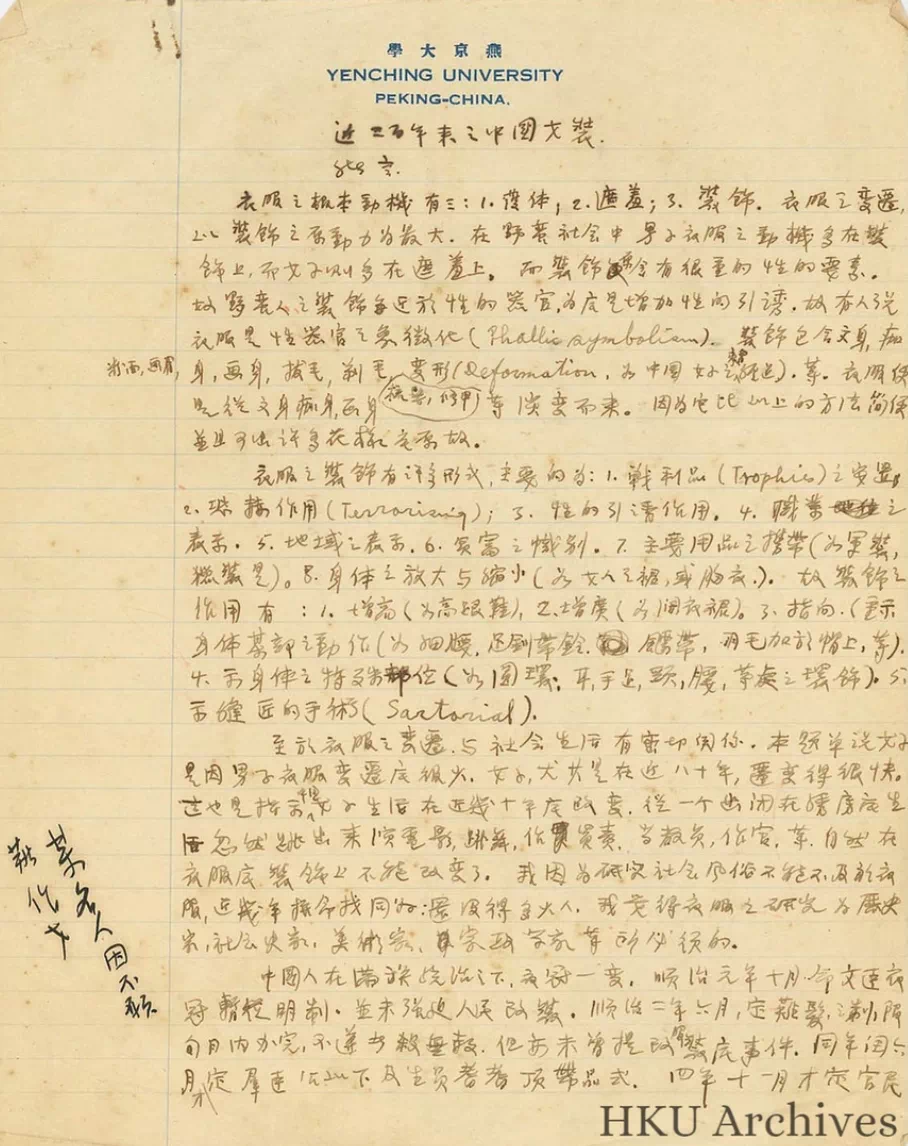 學大京燕
YENCHING UNIVERSITY
PEKING-CHINA.
近三百年來之中國女裝.
衣服之根本動機有三：1.護体；2.遮羞；3.裝飾. 衣服之變遷,
以裝飾之原動力為最大. 在野蠻社會中男子衣服之動機多在裝
飾上,而女子則多在遮羞上. 而裝飾含有很重的性的要素.
故野蠻人之裝飾每近於性的器官,為底是增加性的引誘. 故有人說
衣服是性器官之象徵化(Phallic symbolism). 裝飾包含文身, 痂
粉面,画眉,
身,画身,拔毛,剃毛,變形(Deformation, 為中國女子之纏足).等. 衣服便
是從文身痂身,画身梳染,修甲等演變而來. 因為它比以上的方法簡便
並且可出許多花樣底原故.
衣服之裝飾有許多形式,主要的為：1.戰利品(Trophies)之安置,
2.恐嚇作用(Terrorising)；3.性的引誘作用. 4.職業之
表示. 5.地域之表示. 6.貧富之識別. 7.主要用品之攜帶(為軍裝,
獵裝是). 8.身体之放大与縮小(為女人之裙,或胸衣.). 故裝飾之
作用有：1.增高(為高跟鞋), 2.增廣(為闊衣裙). 3.指向.(表示
身体某部之動作(為細腰, 帶鈴. 帶, 羽毛加於帽上,等).
4.示身体之特殊部位(為圓環, 耳,手,足,頸,腰,等處之環飾). 5.
示縫匠的手術(Sartorial).
至於衣服之變遷,与社會生活有密切関係. 本題單說女子
是因男子衣服變遷底很少. 女子,尤其是在近八十年,遷變得很快.
這也是指示中國女子生活在近幾十年底改變. 從一个幽閉在繡房底生
活忽然跳出來演電影,跳舞,作買賣,当教員,作官,等.自然在
衣服底裝飾上不能不改變了. 我因為研究社會風俗不能不及於衣
服,近幾年揀命找同好：還沒得多少人. 我覺得衣服之研究為歷史
家,社會史家,美術家,家政学家等所必須的.
某名人因不
中國人在滿族統治之下,衣冠一變. 順治元年十月命文武衣
冠暫從明制. 並未強迫人民改裝. 順治二年六月,定薙髮之制,限
旬日内办完,不遵者殺無赦. 但亦未曾提改裝底事件. 同年閏六
月才定群臣以下及生員耆老頂帶品式. 四年十一月才定官民
HKU Archives